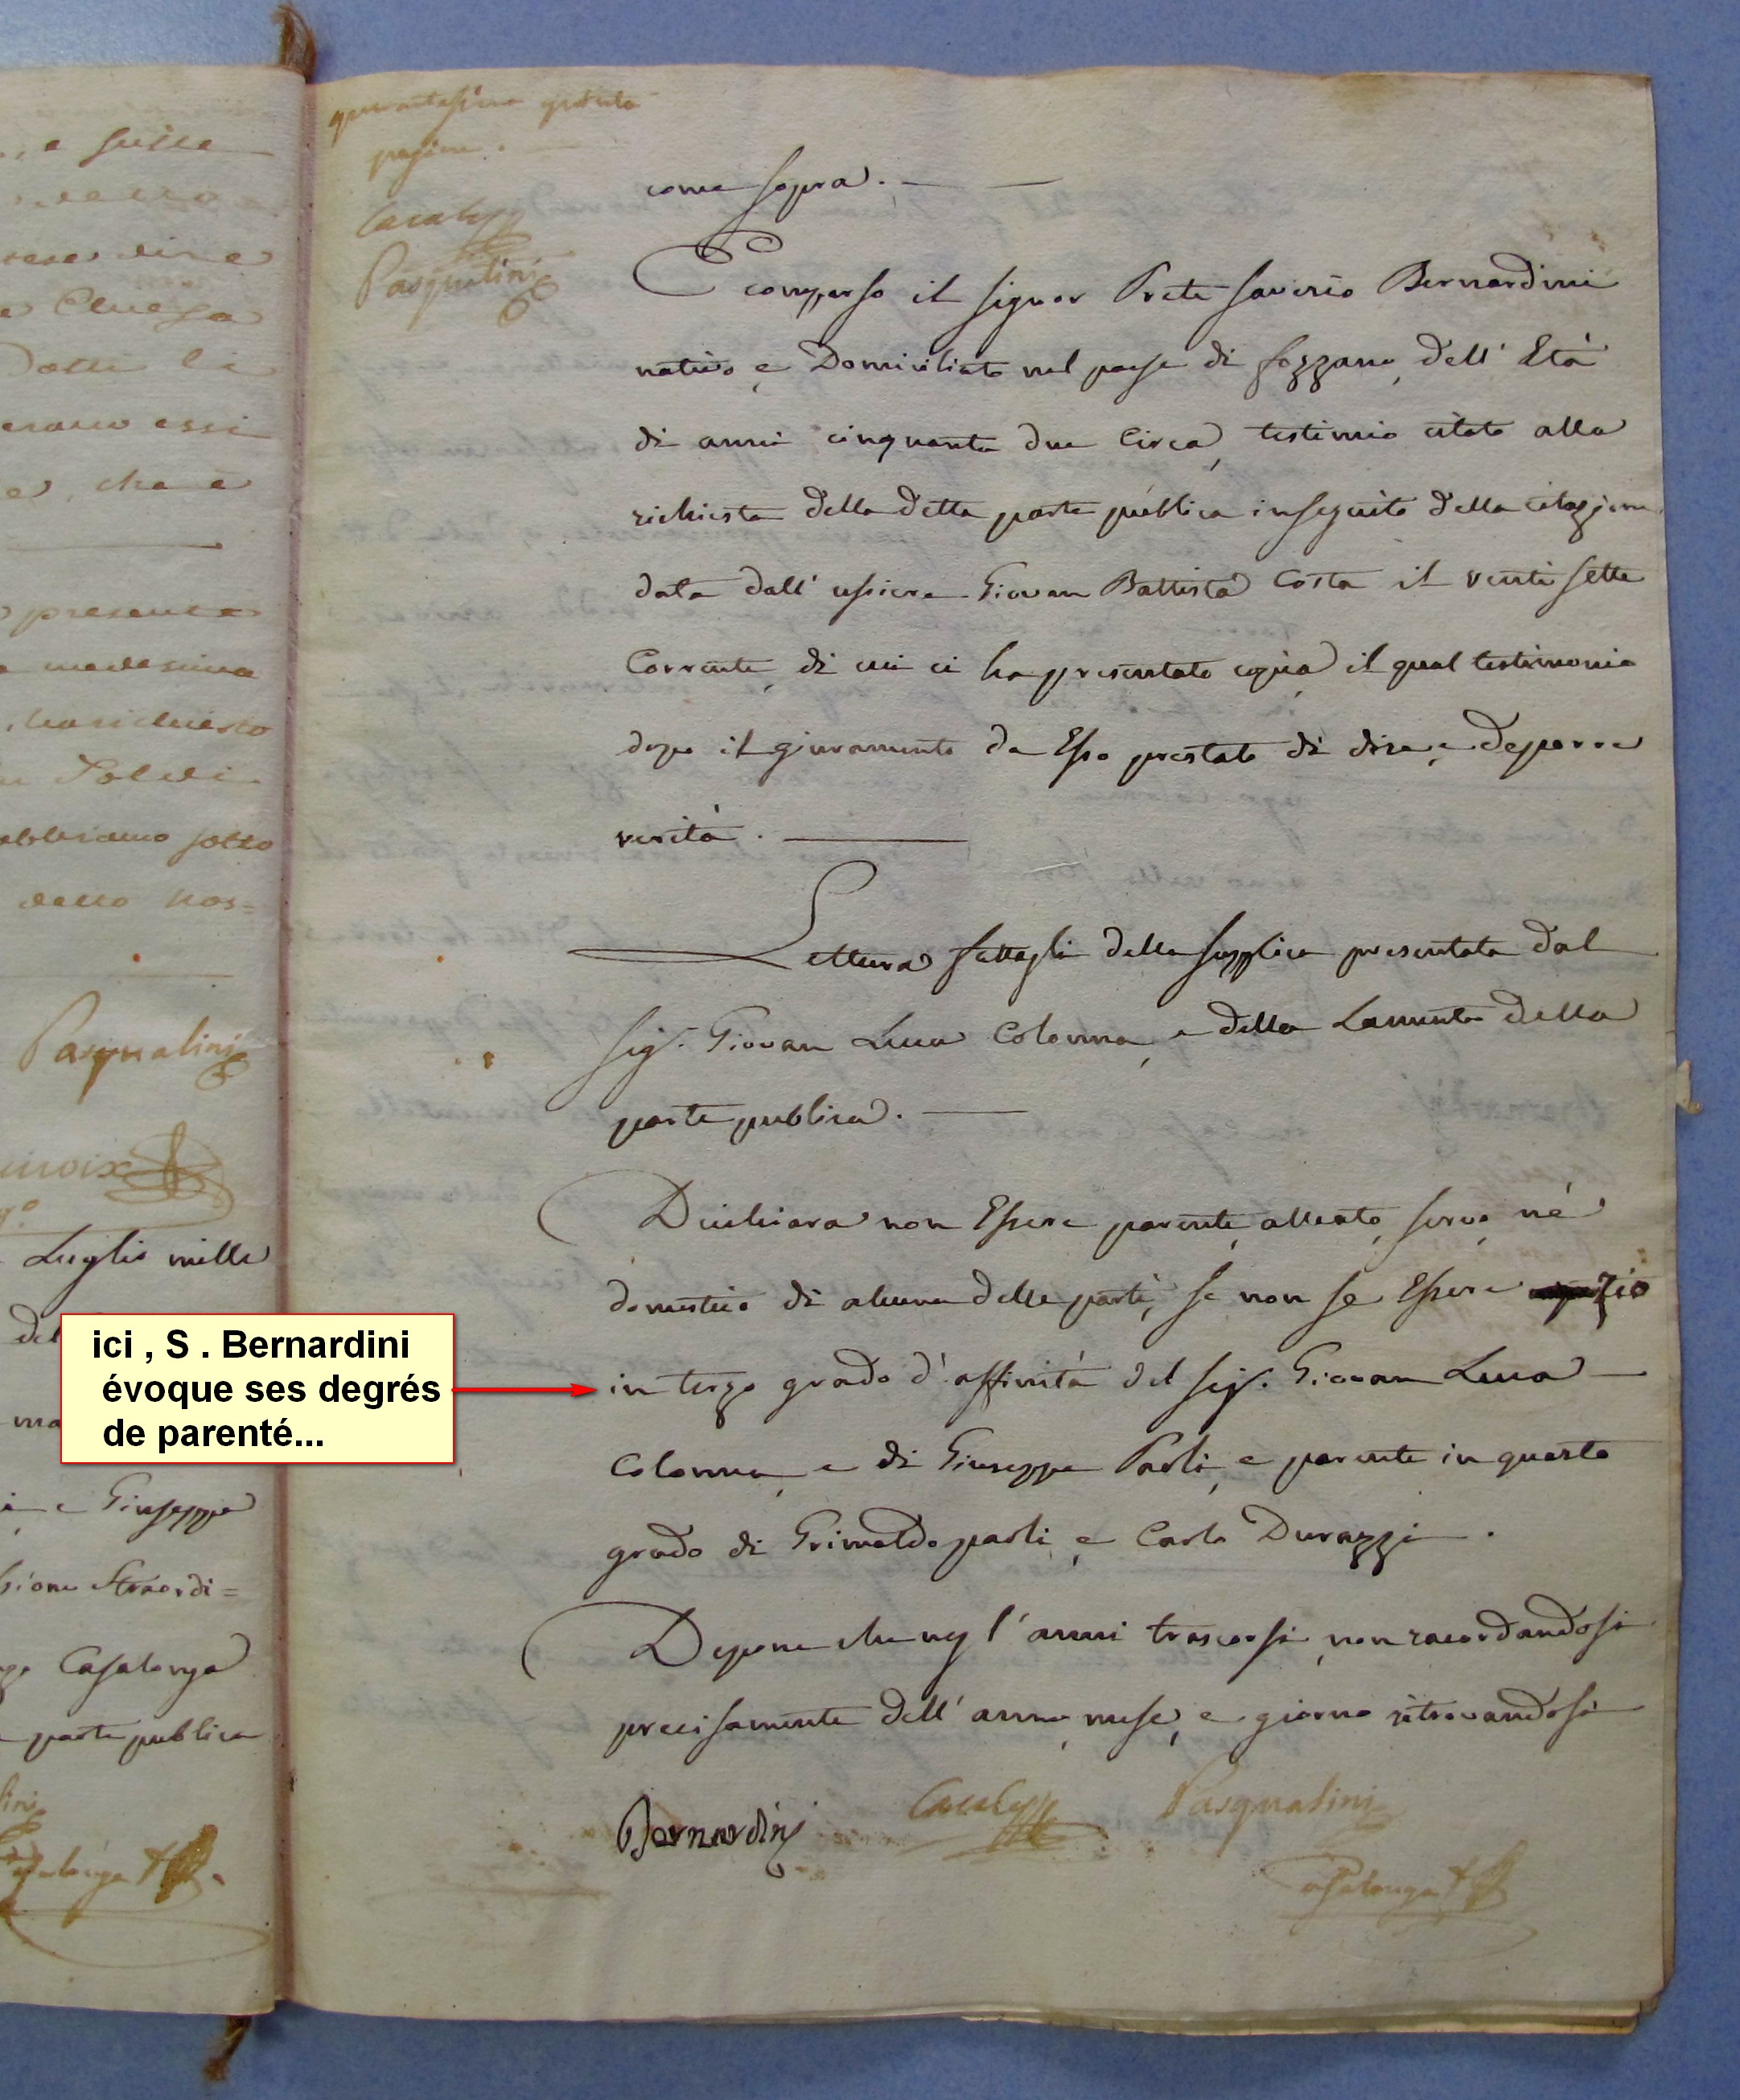 , e sulle
presenta
medesima
, ha richiesto
abbiamo sotto
dello nos=
Pasqualini
Luglio mille
del
ma
e Giuseppe
Straordi=
Casalonga
parte publica
pagina.
Pasqualini
come sopra.
È comparso il signor Prete Saverio Bernardini
nativo e Domiciliato nel paese di fozzano, dell' Età
di anni cinquanta due Circa, testimio citato alla
richiesta della detta parte publica in seguito della citazzione
data dall' usciere Giovan Battista Costa il venti sette
Corrente, di cui ci ha presentato copia, il qual testimonio
dopo il giuramento da Esso prestato di dire, e deporre
verità.
Lettura fattagli della supplica presentata dal
sig.r Giovan Luca Colonna, e della Lamenta della
parte publica.
Dichiara non Essere parente, alleato, servo, né
domestico di alcuna delle parti, se non se Essere zio
in terzo grado d'affinità del sig.r Giovan Luca
Colonna, e di Giuseppe Paoli, e parente in quarto
grado di Grimaldo paoli, e Carlo Durazzi.
Depone che negl'anni trascorsi, non racordandosi
precisamente dell'anno, mese, e giorno ritrovandosi
Bernardini
Pasqualini
Casalonga
ici , S . Bernardini
évoque ses degrés
de parenté...